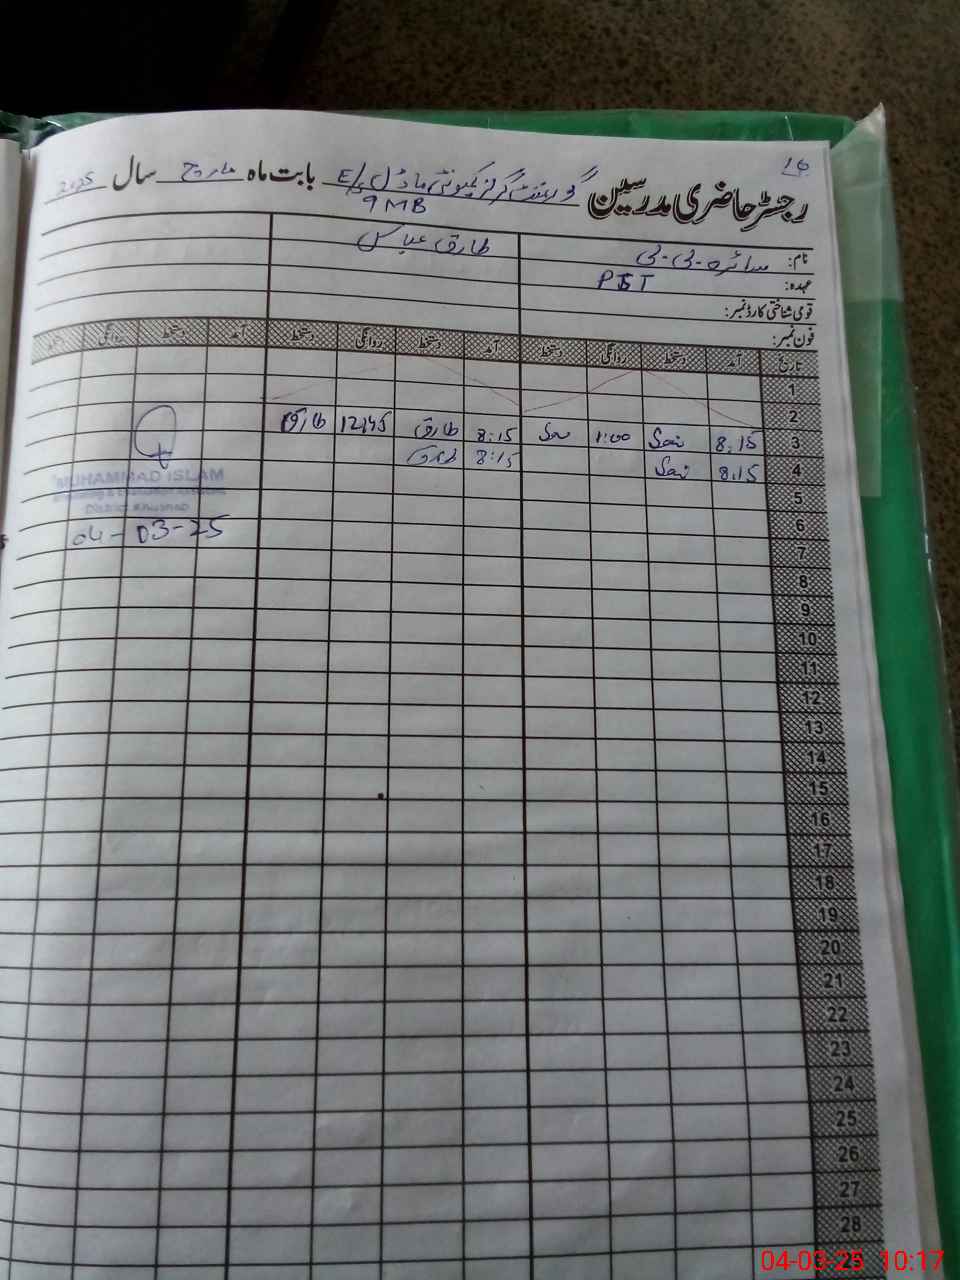 16
رجسٹر حاضری مدرسین گورنمنٹ گرلز کمیونٹی ماڈل E/S بابت ماہ مارچ سال 2025
9 MB
نام: سائرہ بی بی طارق عباس
عہدہ: PST
قومی شناختی کارڈ نمبر:
فون نمبر:
تاریخ آمد دستخط روانگی دستخط آمد دستخط روانگی دستخط آمد دستخط روانگی دستخط
1
2
3 8:15 Sai 1:00 Sai 8:15 طارق 12:45 طارق
4 8:15 Sai 8:15 طارق
MUHAMMAD ISLAM
Monitoring & Evaluation Assistant
District Khushab
04-03-25
5
6
7
8
9
10
11
12
13
14
15
16
17
18
19
20
21
22
23
24
25
26
27
28
04-03-25 10:17